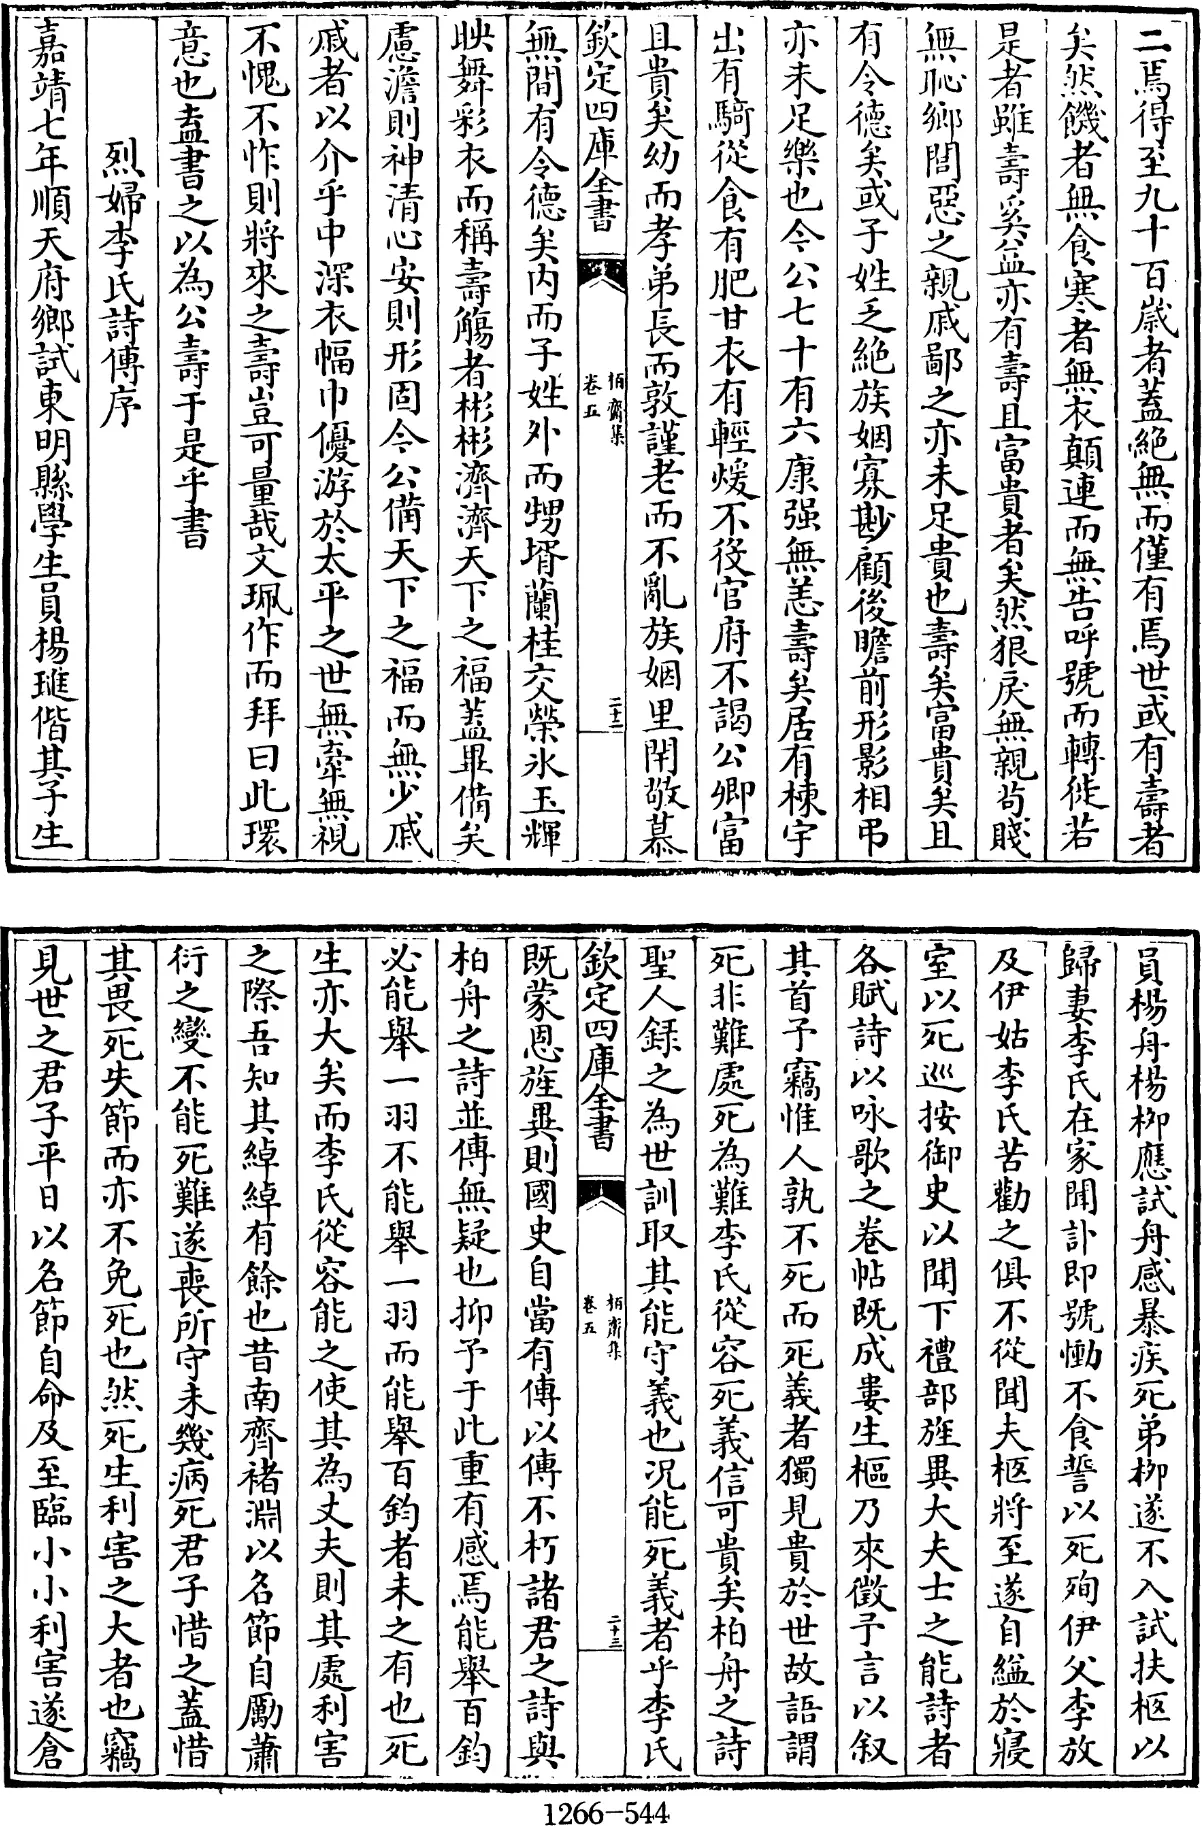 二焉得至九十百歲者蓋絶無而僅有焉世或有壽者
矣然饑者無食寒者無衣顛連而無告呼號而轉徙若
是者雖壽奚益亦有壽且富貴者矣然狠戾無親苟賤
無恥鄉閭惡之親戚鄙之亦未足貴也壽矣富貴矣且
有令德矣或子姓乏絶族姻寡尠顧後瞻前形影相弔
亦未足樂也今公七十有六康强無恙壽矣居有棟宇
出有騎從食有肥甘衣有輕煖不役官府不謁公卿富
且貴矣幼而孝弟長而敦謹老而不亂族姻里閈敬慕
欽定四庫全書
栢齋集
卷五
二十二
無間有令德矣内而子姓外而甥壻蘭桂交榮氷玉輝
映舞彩衣而稱壽觴者彬彬濟濟天下之福蓋畢備矣
慮澹則神清心安則形固今公備天下之福而無少戚
戚者以介乎中深衣幅巾優游於太平之世無牽無視
不愧不怍則將來之壽豈可量哉文珮作而拜曰此環
意也盍書之以為公壽于是乎書
烈婦李氏詩傳序
嘉靖七年順天府鄉試東明縣學生員楊璡偕其子生
員楊舟楊柳應試舟感暴疾死弟柳遂不入試扶柩以
歸妻李氏在家聞訃即號慟不食誓以死殉伊父李放
及伊姑李氏苦勸之俱不從聞夫柩將至遂自縊於寢
室以死巡按御史以聞下禮部旌異大夫士之能詩者
各賦詩以咏歌之卷帖既成婁生樞乃來徵予言以叙
其首予竊惟人孰不死而死義者獨見貴於世故語謂
死非難處死為難李氏從容死義信可貴矣柏舟之詩
聖人録之為世訓取其能守義也况能死義者乎李氏
欽定四庫全書
栢齋集
卷五
二十三
既蒙恩旌異則國史自當有傳以傳不朽諸君之詩與
柏舟之詩並傳無疑也抑予于此重有感焉能舉百鈞
必能舉一羽不能舉一羽而能舉百鈞者未之有也死
生亦大矣而李氏從容能之使其為丈夫則其處利害
之際吾知其綽綽有餘也昔南齊褚淵以名節自勵蕭
衍之變不能死難遂喪所守未幾病死君子惜之蓋惜
其畏死失節而亦不免死也然死生利害之大者也竊
見世之君子平日以名節自命及至臨小小利害遂倉
1266-544